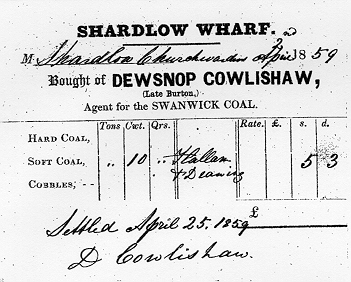 SHARDLOW WHARF.
M Shardlow Churchwardens April 1859
Bought of DEWSNOP COWLISHAW,
(Late Burton,)
Agent for the SWANWICK COAL.
Tons Cwt. Qrs. Rate. £. s. d.
HARD COAL,
SOFT COAL, " 10 " Hallam 5 3
COBBLES, - - & Deaning
£
Settled April 25. 1859
D Cowlishaw.